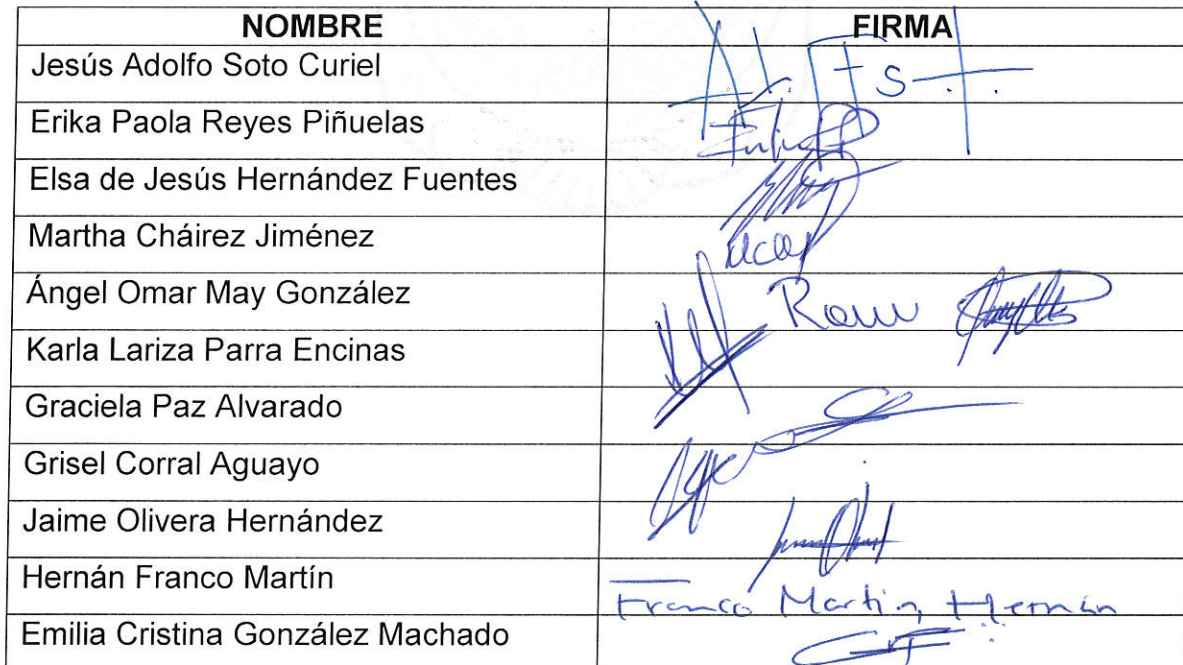 NOMBRE FIRMA
Jesús Adolfo Soto Curiel
Erika Paola Reyes Piñuelas
Elsa de Jesús Hernández Fuentes
Martha Cháirez Jiménez
Ángel Omar May González
Karla Lariza Parra Encinas
Graciela Paz Alvarado
Grisel Corral Aguayo
Jaime Olivera Hernández
Hernán Franco Martín Franco Martín, Hernán
Emilia Cristina González Machado